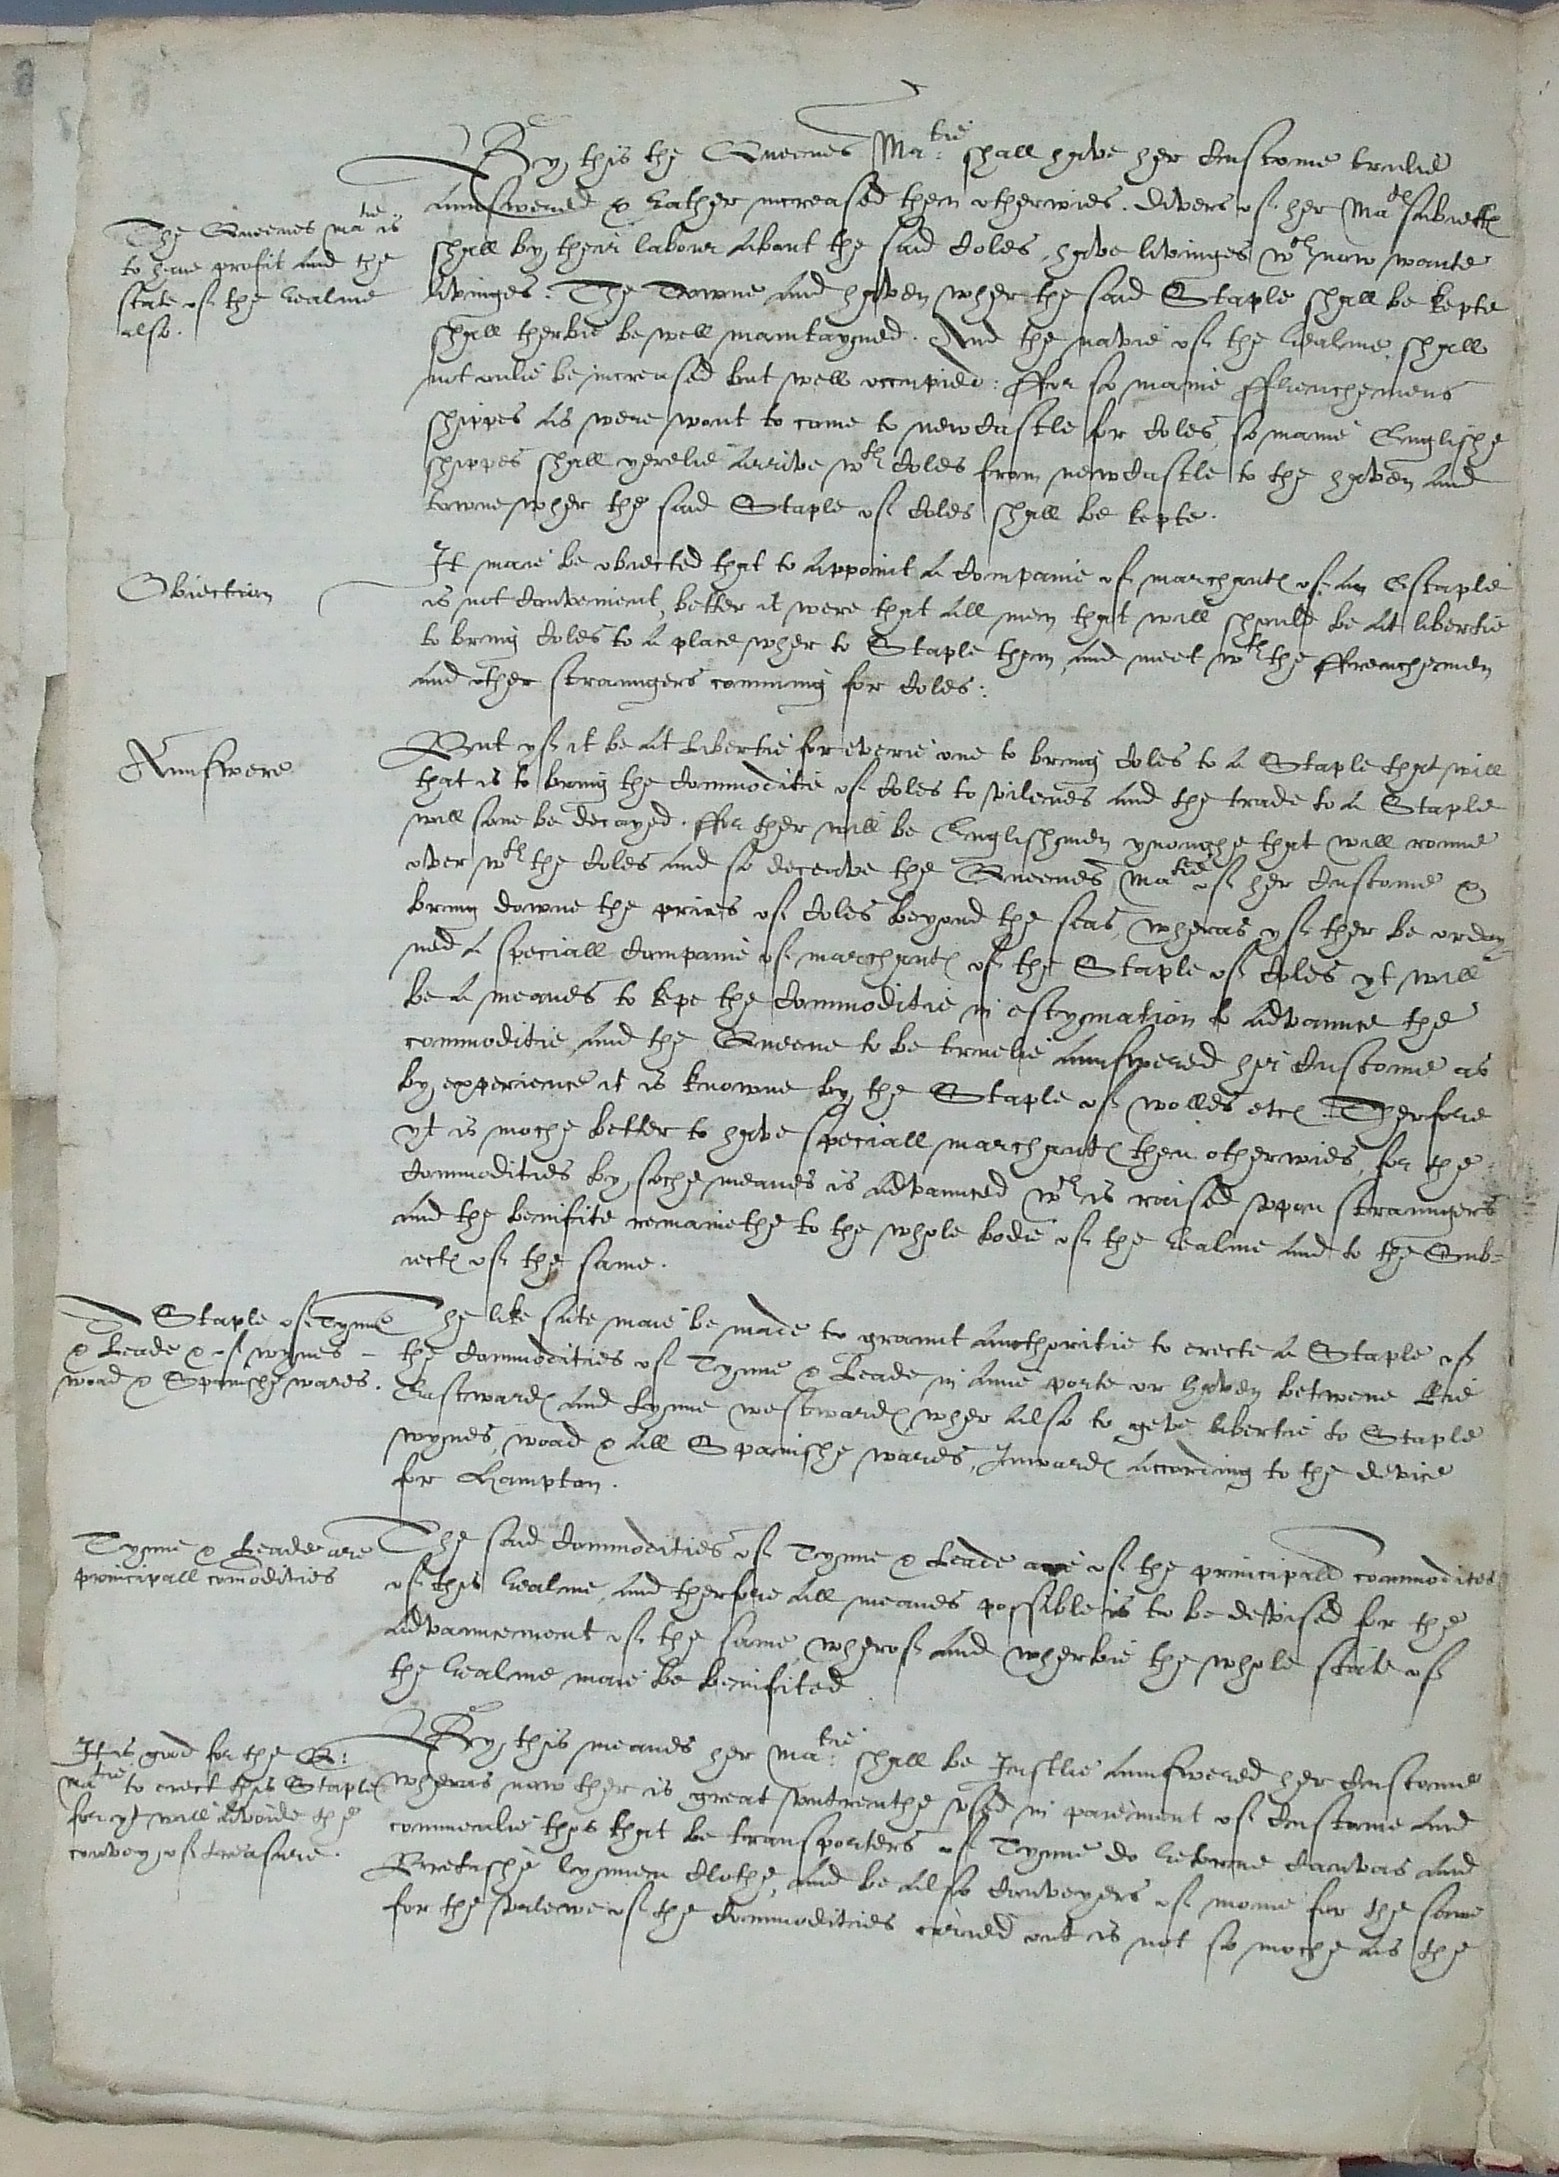 By this the Queenes Ma:tie shall have her Custome trulie
The Queenes ma:tie is
to haue profit and the
state of the Realme
also.
aunswered & Rather increased then otherwies. Divers of her Ma:ties subiectes
shall by their labour about the said Coles, have livinges wch now wante
livinges: The Towne and haven wher the said Staple shall be kepte
shall therbie be well maintayned. And the navie of the Realme shall
not onlie be increased but well occupied: ffor so manie ffrenchemens
shippes as were wont to come to newcastle for Coles, so manie Englishe
shippes shall yerelie Arrive wth Coles from newcastle to the haven and
towne wher the said Staple of Coles shall be kepte.
Obiection
It maie be obiected that to Appoint A Companie of marchantes of An Estaple
is not Convenient, better it were that All men that will should be At libertie
to bring Coles to A place wher to Staple them, and meet wth the ffrenchemen
and other straungers comming for Coles:
Aunswere
But yf it be At Libertie for everie one to bring Coles to A Staple that will
that is to bring the Commoditie of Coles to vilenes and the trade to A Staple
will sone be decayed. ffor ther will be Englishmen ynoughe that will ronne
over wth the Coles and so deceave the Queenes Ma:tie of her Custome &
bring downe the prices of Coles beyond the seas, wheras yf ther be orday-
ned A speciall Companie of marchantes of the Staple of Coles yt will
be A meanes to kepe the Commoditie in estymation to Advaunce the
commoditie, and the Queene to be truelie Aunswered her Custome as
by experience it is knowne by the Staple of wolles etc: Therfore
yt is moche better to have speciall marchantes then otherwies, for the
Commodities by soche meanes is Advaunced wch is raised vpon straungers
and the benifite remainethe to the whole bodie of the Realme and to the Sub-
iectes of the same.
A Staple of Tynne
& Leade & of wynes -
woad & Spanishe wares.
The like sute maie be made to graunt Aucthoritie to erecte A Staple of
the Commodities of Tynne & Leade in Anie porte or haven betwene Rie
Eastwardes and Lynne westwardes, wher Also to geve libertie to Staple
wynes, woad & All Spanishe wares, Inwardes According to the device
for Hampton.
Tynne & Leade are
principall comodities
The said Commodities of Tynne & Leade are of the principall commodites
of this Realme, and therfore All meanes possible is to be devised for the
Advauncement of the same, wherof and wherbie the whole state of
the Realme maie be benifited
It is good for the Q:
matie to erect this Staple
for yt will Advoide the
convey of treasure.
By this meanes her ma:tie shall be Justlie Aunswered her Custome
wheras now ther is great vntreuthe vsed in paiement of Custome and
commenlie thos that be transporters of Tynne do Retorne Canvas and
Bretishe lynnen Clothe, and be Also Conveyers of monie for the same
for the valewe of the Commodities caried out is not so moche As the